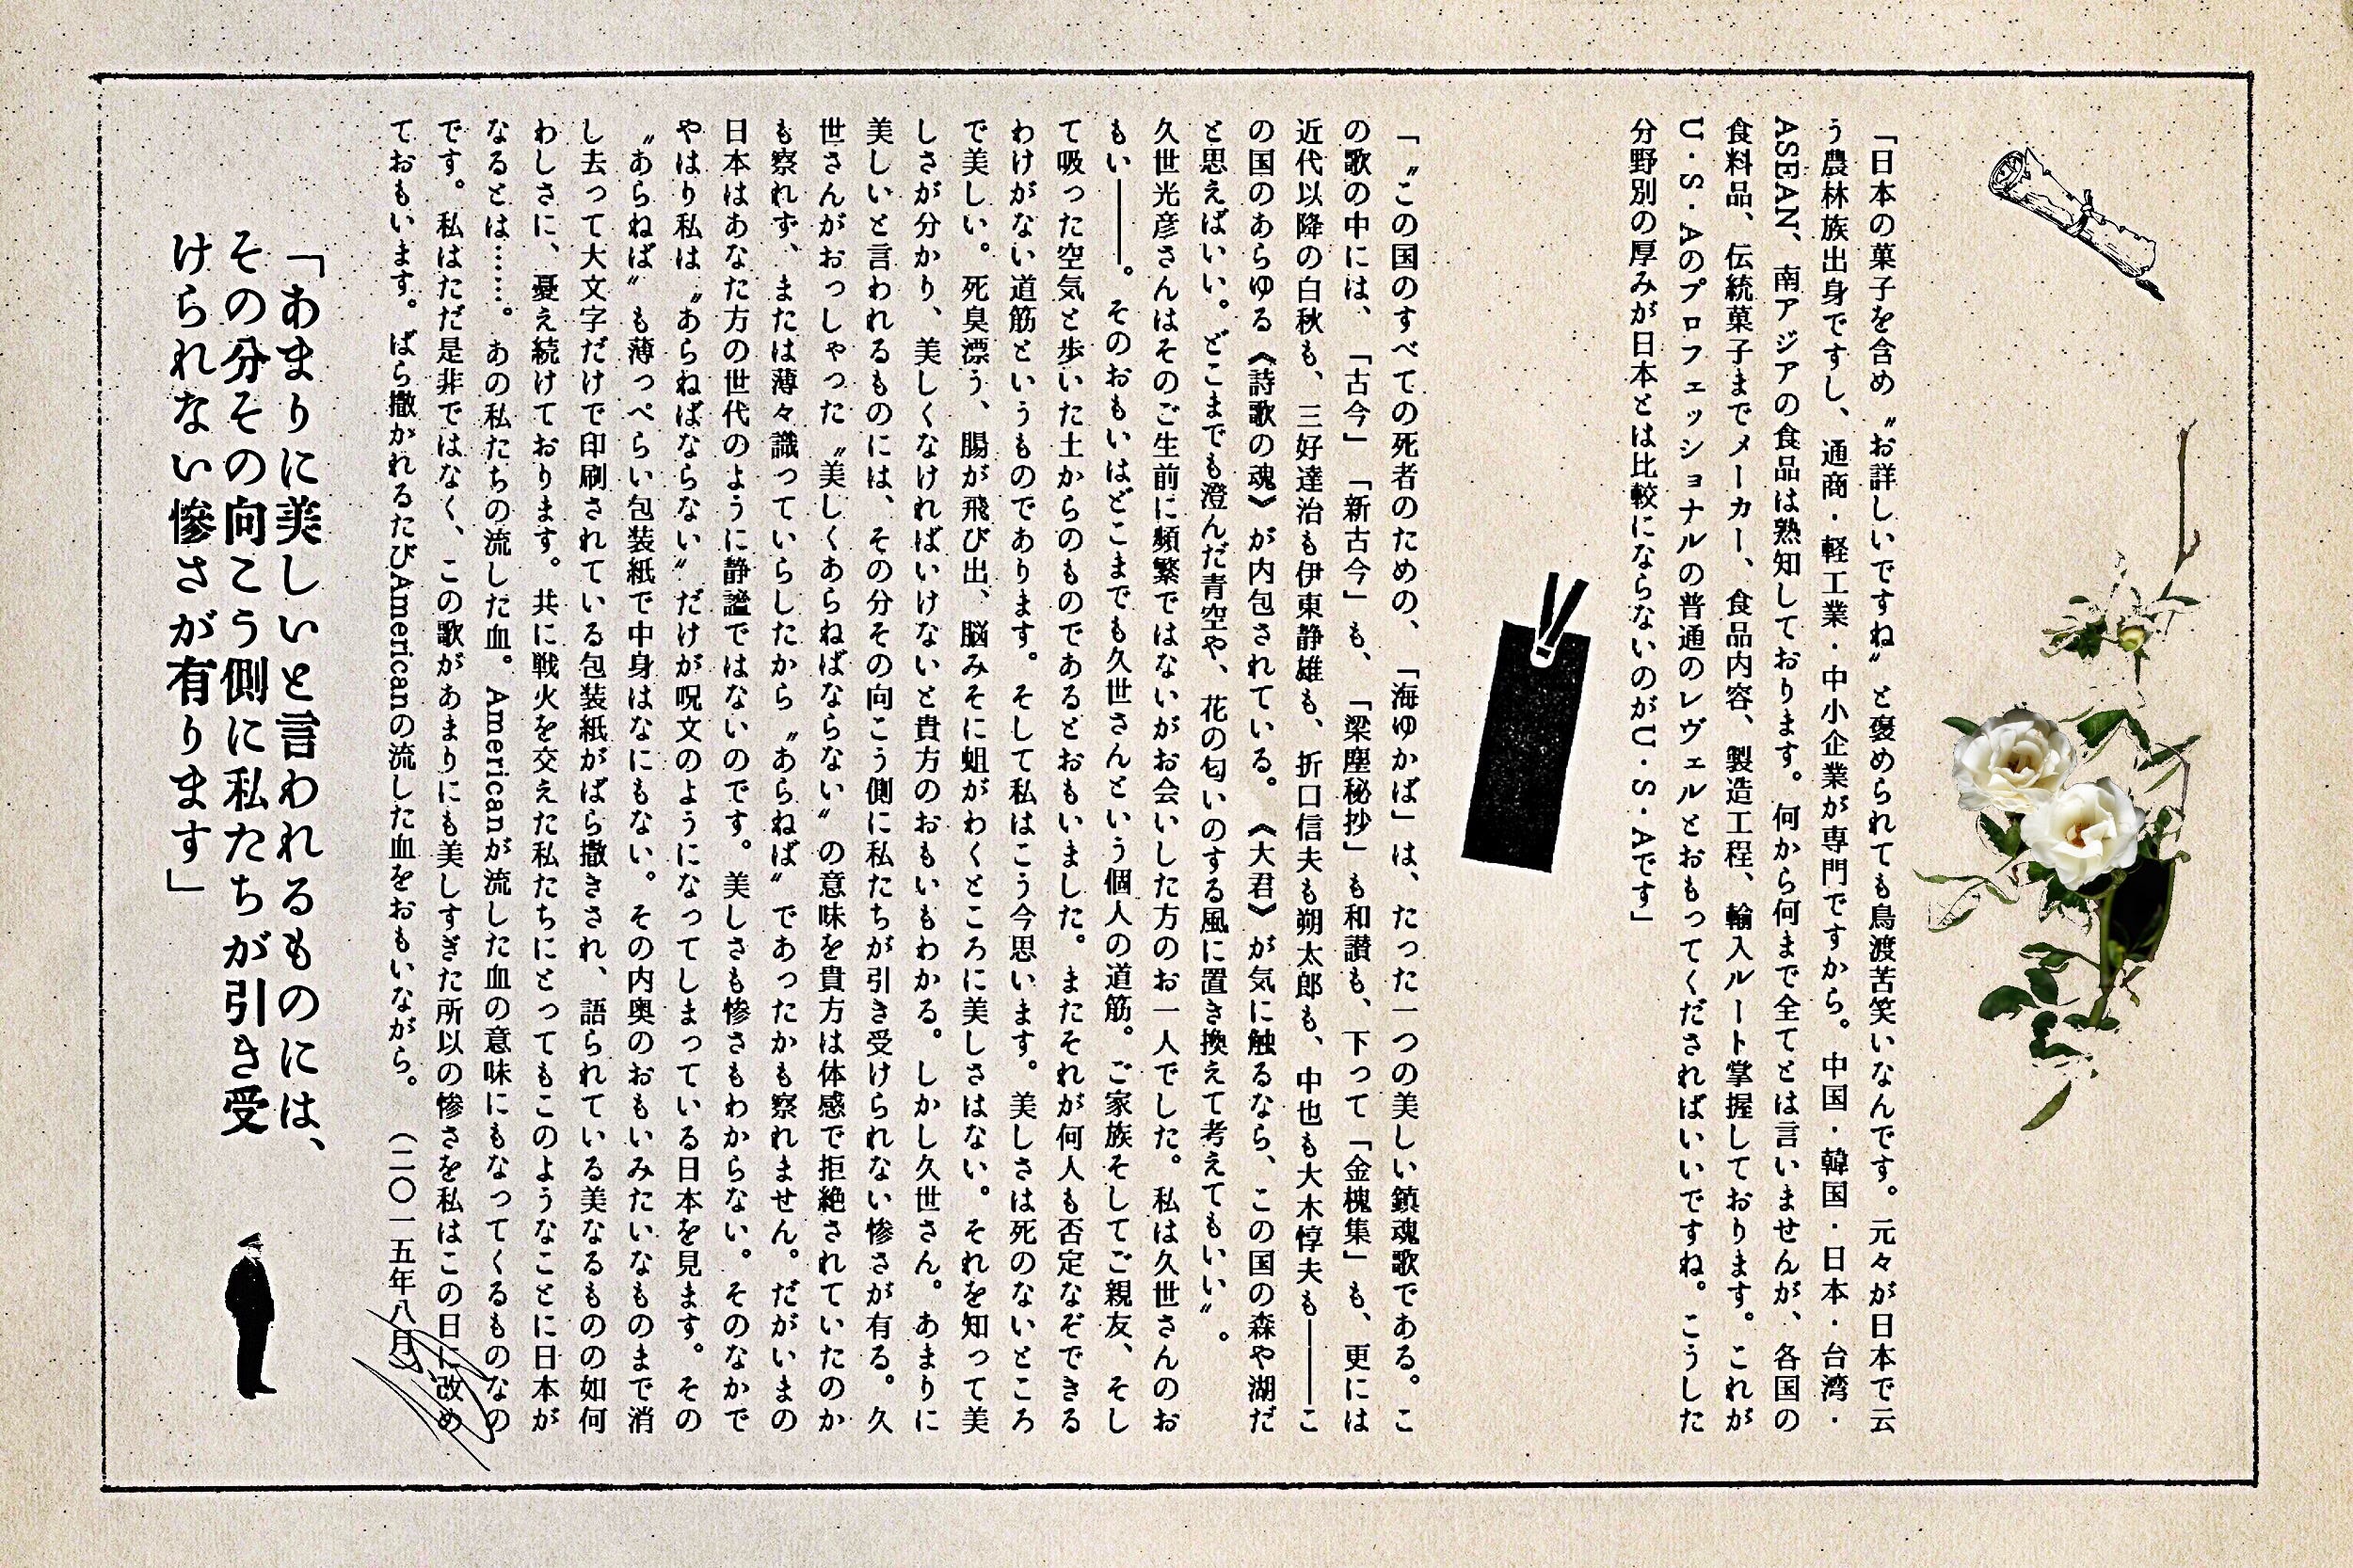 「日本の菓子を含め〝お詳しいですね〟と褒められても鳥渡苦笑いなんです。元々が日本で云
う農林族出身ですし、通商・軽工業・中小企業が専門ですから。中国・韓国・日本・台湾・
ASEAN、南アジアの食品は熟知しております。何から何まで全てとは言いませんが、各国の
食料品、伝統菓子までメーカー、食品内容、製造工程、輸入ルート掌握しております。これが
U・S・Aのプロフェッショナルの普通のレヴェルとおもってくださればいいですね。こうした
分野別の厚みが日本とは比較にならないのがU・S・Aです」
「〝この国のすべての死者のための、「海ゆかば」は、たった一つの美しい鎮魂歌である。こ
の歌の中には、「古今」「新古今」も、「梁塵秘抄」も和讃も、下って「金槐集」も、更には
近代以降の白秋も、三好達治も伊東静雄も、折口信夫も朔太郎も、中也も大木惇夫も――こ
の国のあらゆる《詩歌の魂》が内包されている。《大君》が気に触るなら、この国の森や湖だ
と思えばいい。どこまでも澄んだ青空や、花の匂いのする風に置き換えて考えてもいい〟。
久世光彦さんはそのご生前に頻繁ではないがお会いした方のお一人でした。私は久世さんのお
もい――。そのおもいはどこまでも久世さんという個人の道筋。ご家族そしてご親友、そし
て吸った空気と歩いた土からのものであるとおもいました。またそれが何人も否定なぞできる
わけがない道筋というものであります。そして私はこう今思います。美しさは死のないところ
で美しい。死臭漂う、腸が飛び出、脳みそに蛆がわくところに美しさはない。それを知って美
しさが分かり、美しくなければいけないと貴方のおもいもわかる。しかし久世さん。あまりに
美しいと言われるものには、その分その向こう側に私たちが引き受けられない惨さが有る。久
世さんがおっしゃった〝美しくあらねばならない〟の意味を貴方は体感で拒絶されていたのか
も察れず、または薄々識っていらしたから〝あらねば〟であったかも察れません。だがいまの
日本はあなた方の世代のように静謐ではないのです。美しさも惨さもわからない。そのなかで
やはり私は〝あらねばならない〟だけが呪文のようになってしまっている日本を見ます。その
〝あらねば〟も薄っぺらい包装紙で中身はなにもない。その内奥のおもいみたいなものまで消
し去って大文字だけで印刷されている包装紙がばら撒きされ、語られている美なるものの如何
わしさに、憂え続けております。共に戦火を交えた私たちにとってもこのようなことに日本が
なるとは……。あの私たちの流した血。Americanが流した血の意味にもなってくるものなの
です。私はただ是非ではなく、この歌があまりにも美しすぎた所以の惨さを私はこの日に改め
ておもいます。ばら撒かれるたびAmericanの流した血をおもいながら。（二〇一五年八月）
「あまりに美しいと言われるものには、
その分その向こう側に私たちが引き受
けられない惨さが有ります」